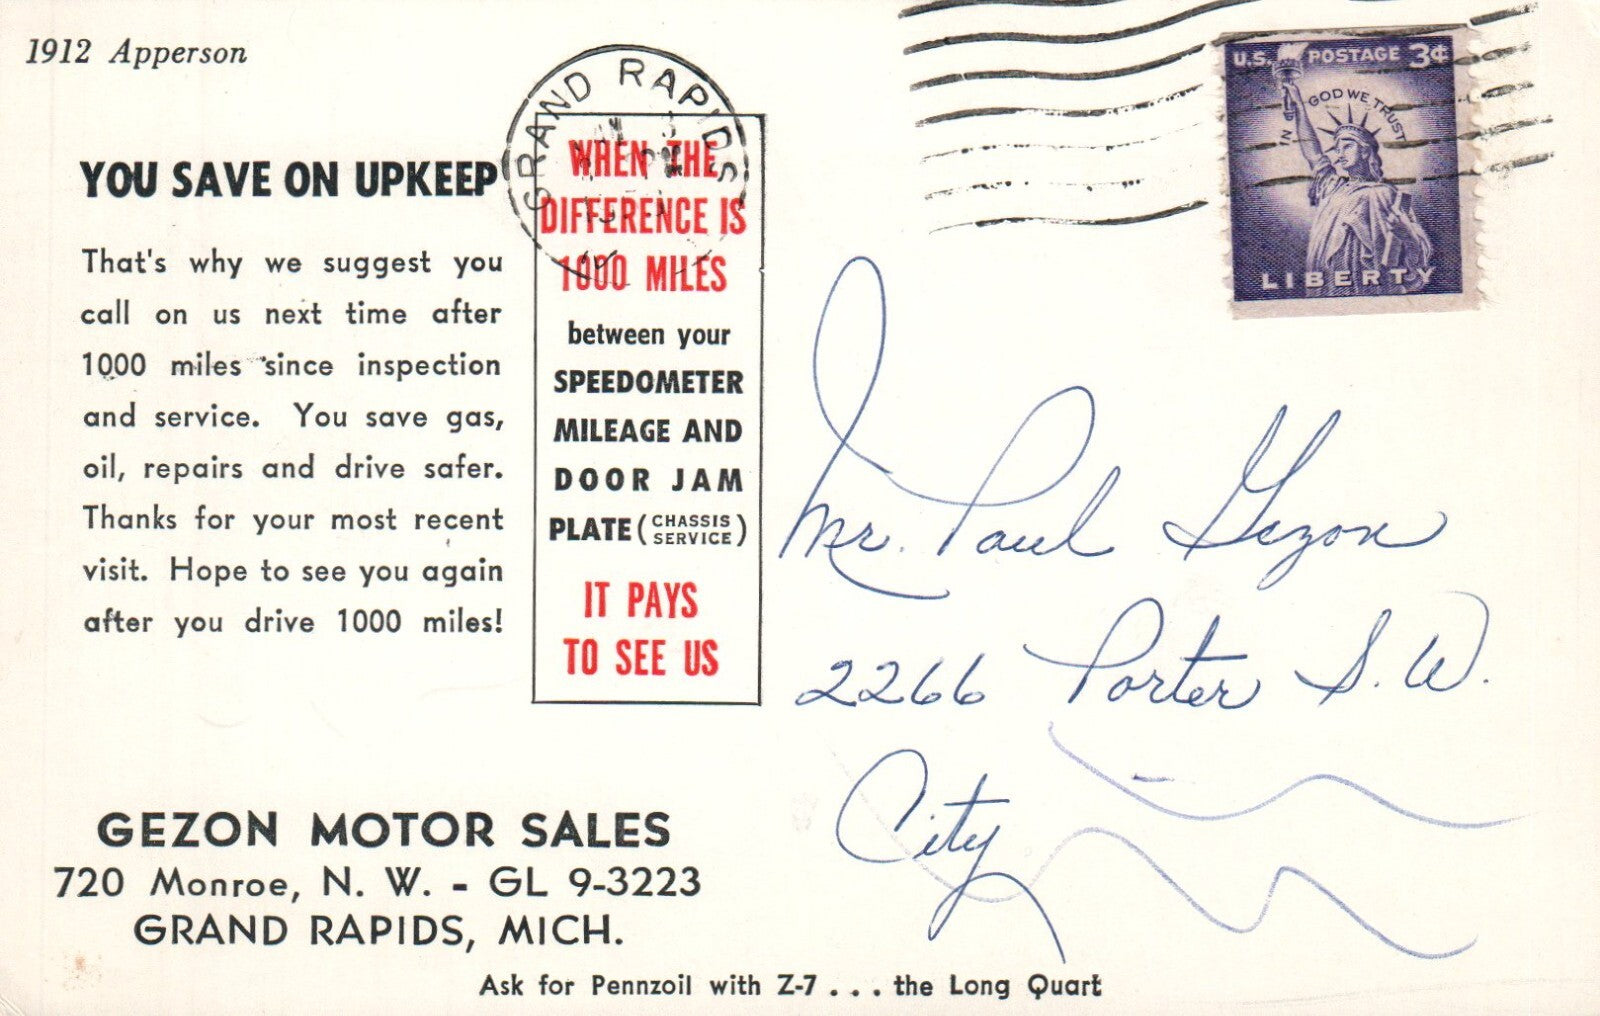 1912 Apperson
YOU SAVE ON UPKEEP
That's why we suggest you
call on us next time after
1000 miles since inspection
and service. You save gas,
oil, repairs and drive safer.
Thanks for your most recent
visit. Hope to see you again
after you drive 1000 miles!
GRAND RAPIDS
WHEN THE
DIFFERENCE IS
1000 MILES
between your
SPEEDOMETER
MILEAGE AND
DOOR JAM
PLATE (CHASSIS
SERVICE)
IT PAYS
TO SEE US
GEZON MOTOR SALES
720 Monroe, N. W. - GL 9-3223
GRAND RAPIDS, MICH.
Ask for Pennzoil with Z-7 . . . the Long Quart
U.S. POSTAGE 3¢
IN GOD WE TRUST
LIBERTY
Mr. Paul Gezon
2266 Porter S.W.
City